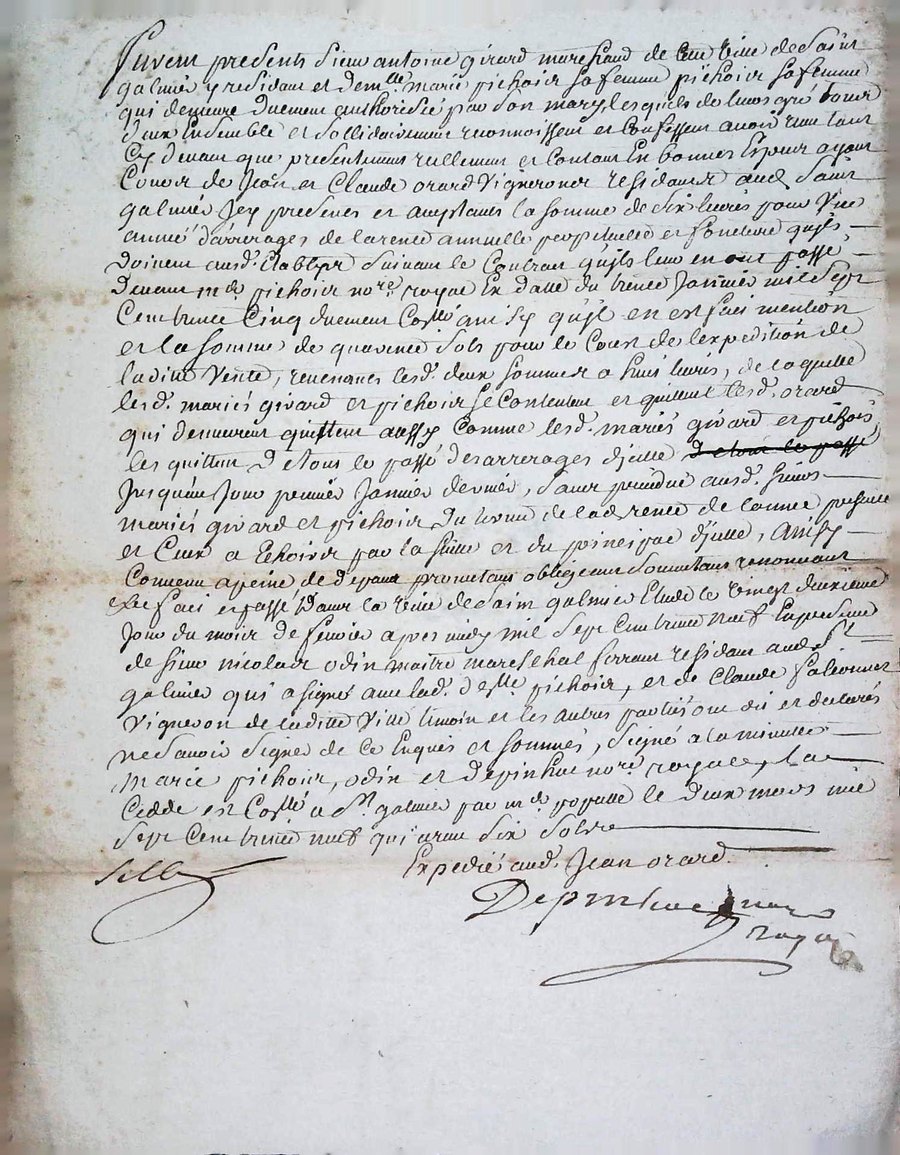 Furent presents Sieur antoine girard marchand de cette ville de saint
galmier y residant et dem.lle marie pichoir sa femme pichoir sa femme
qui demeure duement authorisée par son mary lesquels de leurs gré tous
deux Ensemble et sollidairement reconnoissent et confessent avoir reçu tant
Cy devant que presentement reellement et contant En bonnes Especes ayant
Cours de Jean et Claude orard Vignerons residants aud. Saint
galmier Icy presents et acceptants la somme de six livres pour Une
année d'arrerages de la rente annuelle perpetuelle et fonciere qu'ils
doivent ausd. Etablys suivant le Contrat qu'ils leur en ont passé
devant m.e pichoir no.re royal En datte du trente Janvier mil sept
Cent trente Cinq duement Co.llé ainsy qu'il en est fait mention
et la somme de quarente sols pour le Cout de l'expedition de
laditte Vente, revenantes lesd. deux sommes a huit livres, de laquelle
lesd. mariés girard et pichoir se Contentent et quittent lesd. orard
qui demeurent quittent aussy comme lesd. mariés girard et pichoir
les quittent de tous le passé des arrerages d'jcelle de tout le passé
Jusqu'au Jour premier Janvier dernier, sans prejudice ausd. sieurs
mariés girard et pichoir du terme de lad. rente de l'année presente
et Ceux a Echoir par la suitte et du principal d'jcelle, ainsy
Convenu a peine de depans promettans obligeant soumettans renonceant
fait et passé dans la ville de saint galmier Etude le vingt deuxieme
Jour du mois de fevrier apres midy mil sept Cent trente neuf En presence
de sieur nicolas odin maitre marechal ferrant residant aud. S.t
galmier qui a signé avec lad. d.elle pichoir, et de Claude
Vigneron de laditte Ville temoin et les autres parties ont dit et declarés
ne savoir signer de ce Enquis et sommés, signé a la minutte
marie pichoir, odin et Depinhac no.re royal, La
Cedde est Co.llé a S.t galmier par m.e populle le deux mars mil
sept Cent trente neuf qui a reçu six sols
Expedié aud. Jean orard.
Scellé
Depinhac no.re
royal